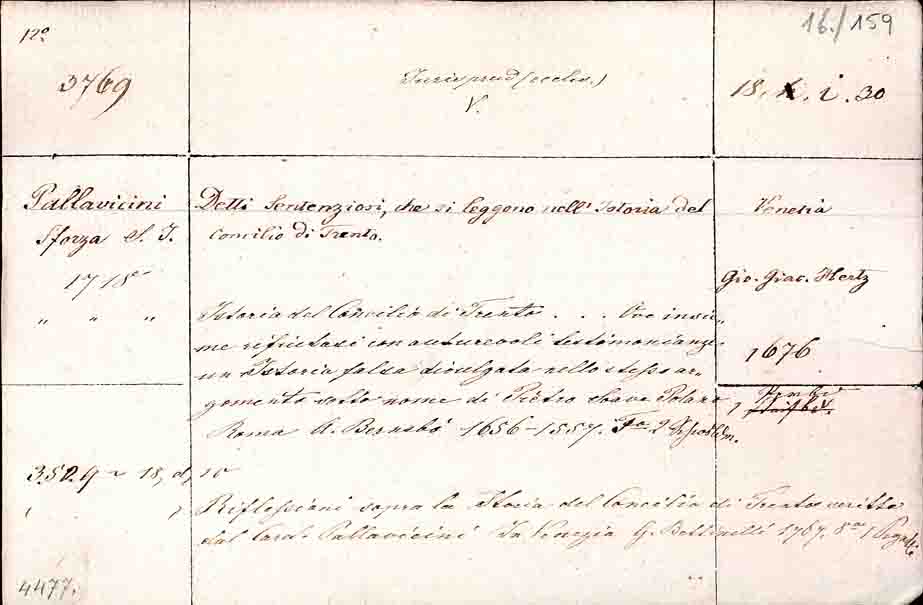 12º
16./159
3769
Jurisprud (eccles.)
V.
18. i. 30
Pallavicini
Sforza S. J.
Detti Sentenziosi, che si leggono nell' Istoria del
Concilio di Trento.
Venetia
Gio. Giac. Hertz
1676
1718
" " "
Istoria del Concilio di Trento . . . Ove insie„
me rifiutasi con autorevoli testimonianze
un Istoria falsa divulgata nello stesso ar„
gomento sotto nome di Pietro Soave Polano
Roma A. Bernabò 1656-1557. Fo. 2
1
350. 9 ~ 18, d, 10
Riflessioni sopra la Istoria del Concilio di Trento scritta
dal Card. Pallavicini In Venezia G. Bettinelli 1767. 8vo 1
4477.